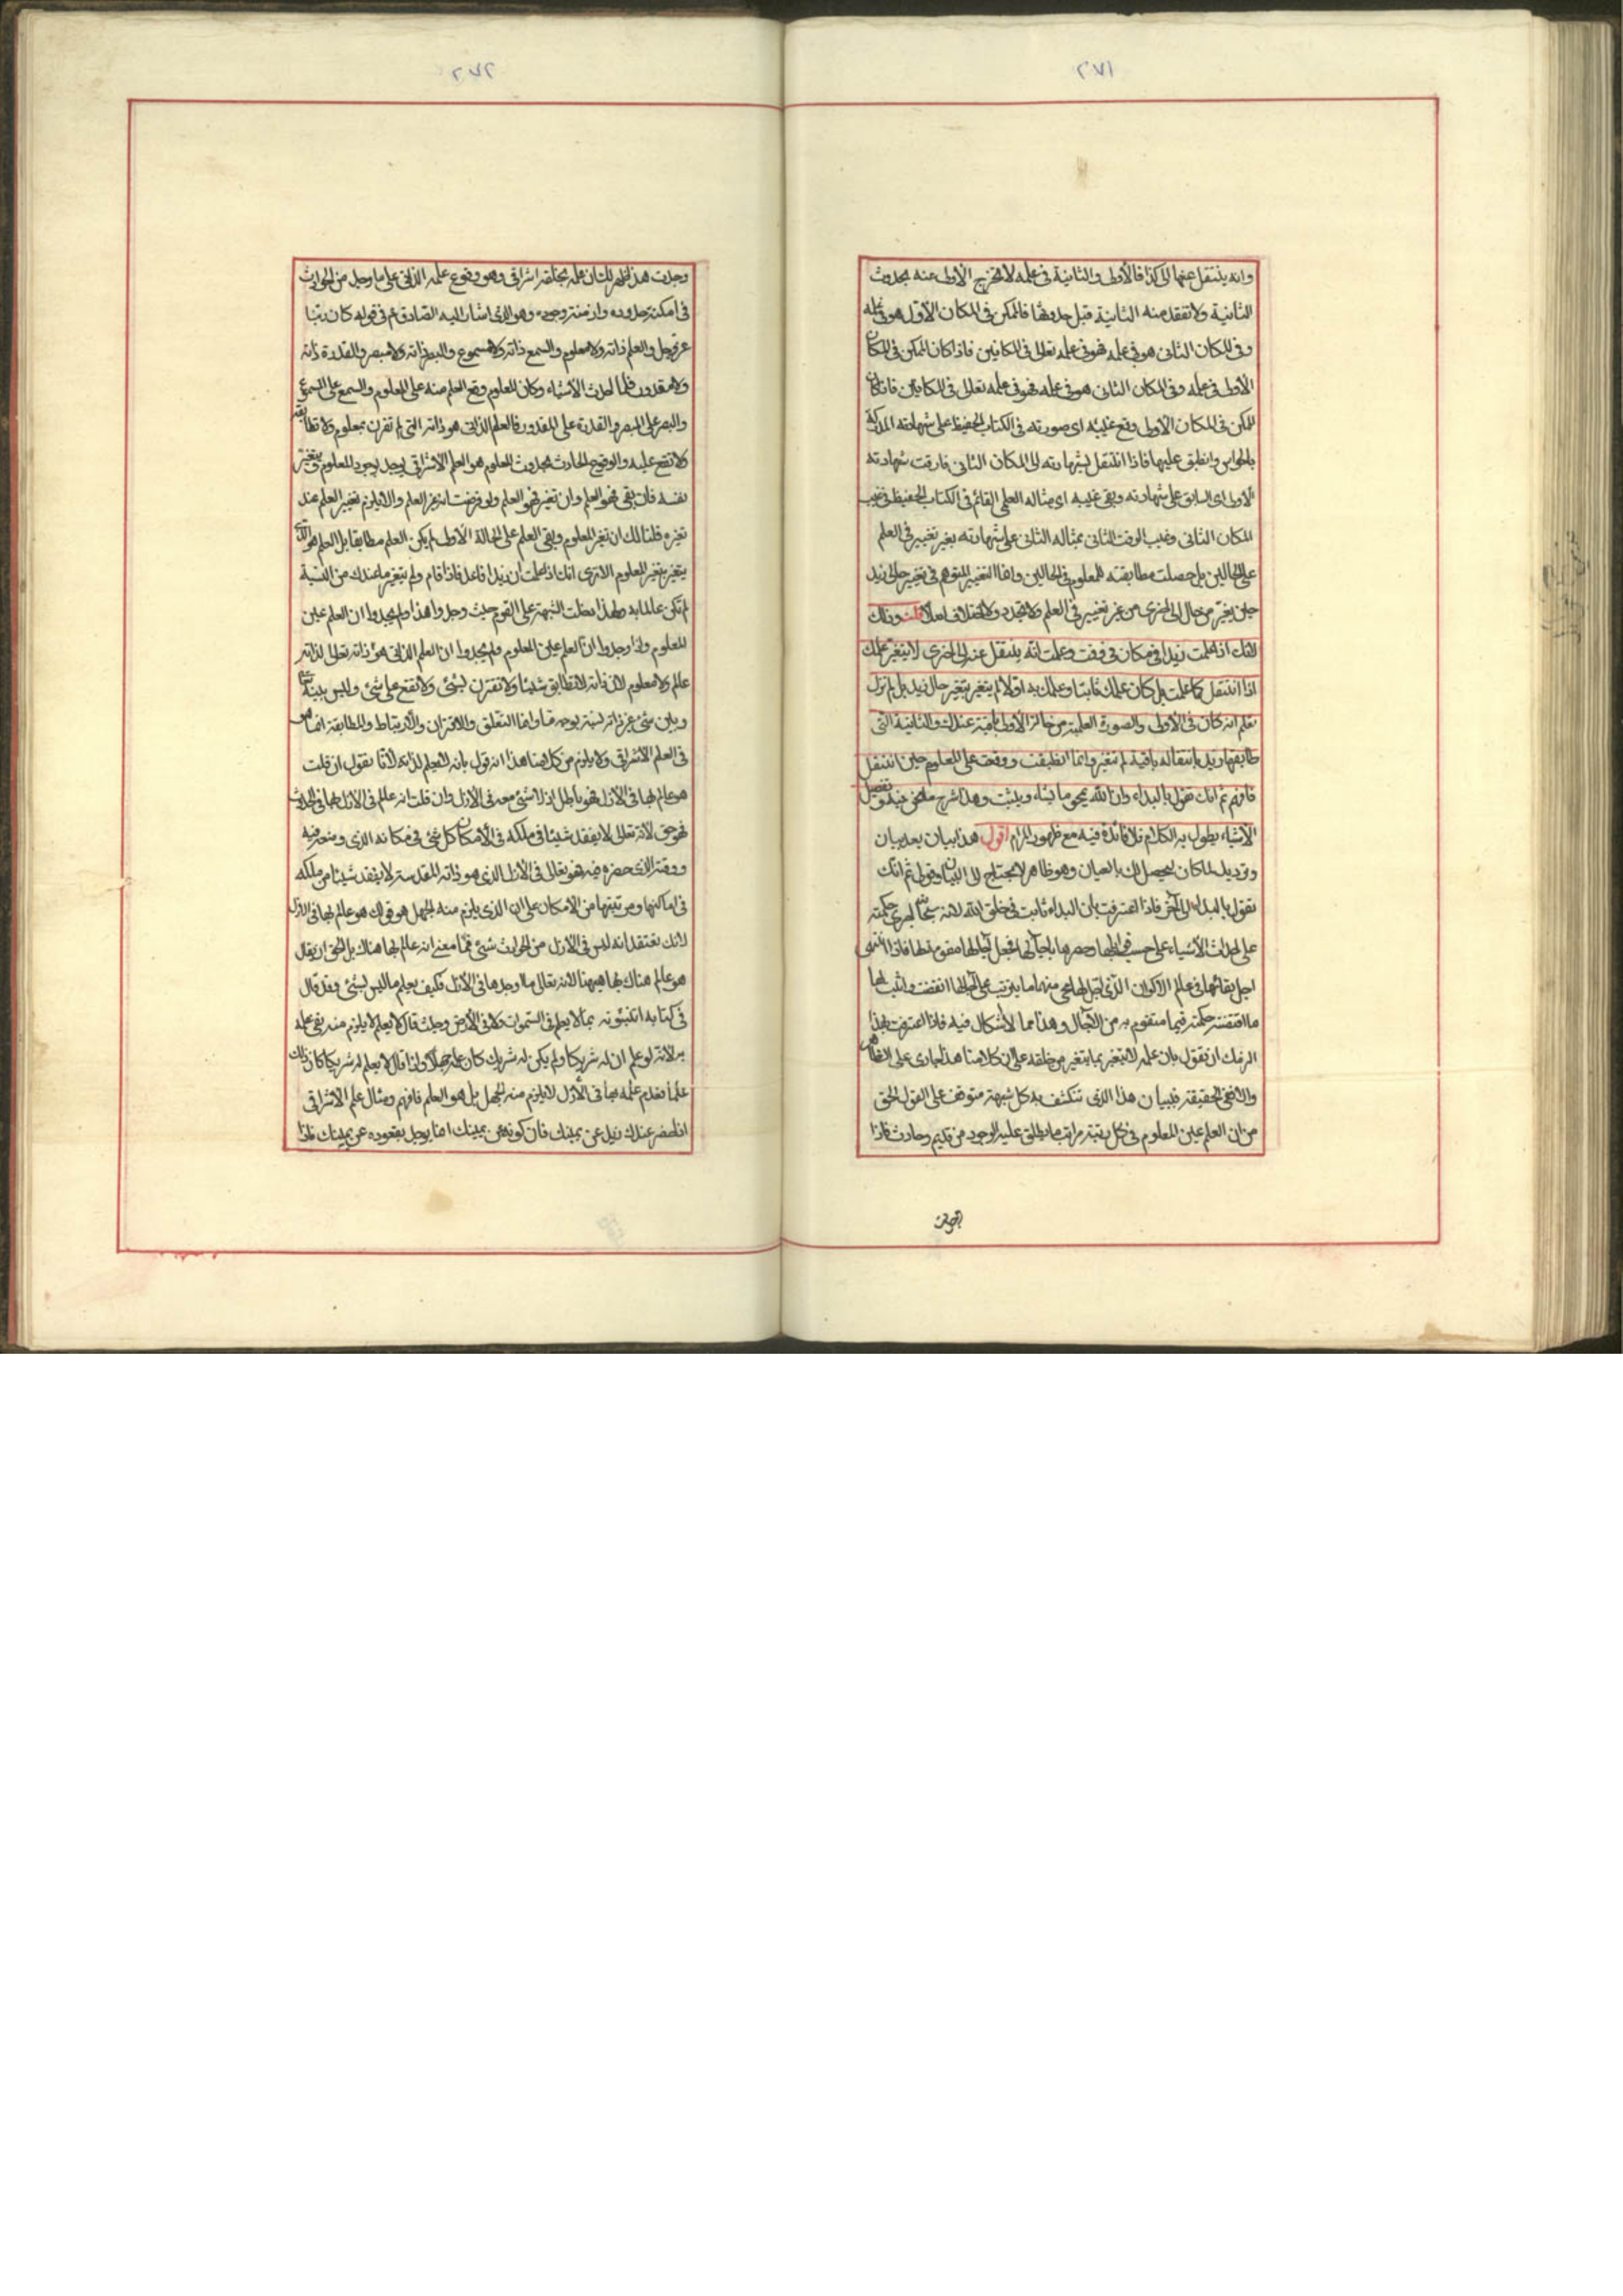 ٢٧١
وانه ينتقل عنها الى كذا فالأولى والثانية في علمه لا تخرج الأولى عنه بحدوث
الثانية ولا تفقد منه الثانية قبل حدوثها فالممكن في المكان الأول هو في علمه
وفي المكان الثاني هو في علمه فهو في علمه تعالى في المكانين فاذا كان الممكن في المكان
الأول في علمه وفي المكان الثاني هو في علمه فهو في علمه تعالى في المكانين فاذا كان
الممكن في المكان الأول وقع غيبه اى صورته في الكتاب الحفيظ على شهادته المدركة
بالحواس وانطبق عليها فاذا انتقل بشهادته الى المكان الثاني فارقت شهادته
الأولى اى السابق على شهادته وبقى غيبه اى مثاله العلمي القائم في الكتاب الحفيظ في غيب
المكان الثاني وغيب الوقت الثاني بمثاله الثاني على شهادته بغير تغيير في العلم
على الحالين بل حصلت مطابقته للمعلوم في الحالين وانما التغيير المتوهم في تغيير حال زيد
حين تغير من حال الى اخرى من غير تغيير في العلم ولا تجدد ولا اختلاف اصلا قلت وذلك
لانك اذا علمت زيدا في مكان في وقت وعلمت انه ينتقل عنه الى اخرى لا يتغير علمك
اذا انتقل كما علمت بل كان علمك ثابتا وعلمك به اولا لم يتغير بتغير حال زيد بل لم تزل
تعلم انه كان في الأولى والصورة العلمية من حالته الأولى باقية عندك والثانية التي
طابقها زيد بانتقاله باقية لم تتغير وانما انطبقت ووقعت على المعلوم حين انتقل
فافهم ثم انك تقول بالبداء وان الله يمحو ما يشاء ويثبت وهذا شرح ما نحن فيه وتفصيل
الأشياء يطول به الكلام فلا فائدة فيه مع ظهور المرام اقول هذا بيان بعد بيان
وترديد لما كان يحصل لك بالعيان وهو ظاهر لا يحتاج الى البيان وقولي ثم انك
تقول بالبداء الى آخر فاذا اعترفت بان البداء ثابت في خلق الله لانه سبحانه اجرى حكمته
على احداث الأشياء على حسب قوابلها وحصرها باجالها فجعل آجالها مفوق منها فاذا انتهى
اجل بقائها في عالم الاكوان الذي اجل لها محى منها ما يترتب على آجالها انقضت واثبت لها
ما اقتضته حكمته فيما متقوم به من الآجال وهذا مما لا اشكال فيه فاذا اعترفت بهذا
الزمك ان تقول بان علمه لا يتغير بما يتغير من خلقه على ان كلامنا هذا جارى على الظاهر
والا ففي الحقيقة فبيان هذا الذي تنكشف به كل شبهة متوقف على القول الحق
من ان العلم عين المعلوم في كل رتبة من مراتب ما يطلق عليه الوجود من قديم وحادث فاذا
٢٧٢
وجدت هذا ظهر لك ان علمه بخلقه اشراقي وهو وقوع علمه الذاتي على ما وجد من الحوادث
في امكنة حدوده وازمنة وجوده وهو الذي اشار اليه الصادق ع في قوله كان ربنا
عز وجل والعلم ذاته ولا معلوم والسمع ذاته ولا مسموع والبصر ذاته ولا مبصر والقدرة ذاته
ولا مقدور فلما احدث الأشياء وكان المعلوم وقع العلم منه على المعلوم والسمع على المسموع
والبصر على المبصر والقدرة على المقدور فالعلم الذاتي هو ذاته التي لم تقترن بمعلوم ولا تطابقه
ولا تقع عليه والوقوع الحادث بحدوث المعلوم هو العلم الاشراقي يوجد بوجود المعلوم ويتغير
نفسه فان بقى فهو العلم وان تغير فهو العلم ولو فرضت انه غير العلم والا يلزم تغيير العلم عند
تغيره قلنا لك ان تغير المعلوم وبقى العلم على الحالة الأولى لم يكن العلم مطابقا بل العلم هو الذي
يتغير بتغير المعلوم الا ترى انك اذا علمت ان زيدا قاعد فاذا قام ولم يتغير ما عندك من النسبة
لم تكن عالما به ولهذا دخلت الشبهة على القوم حيث وجدوا هذا ولم يجدوا ان العلم عين
المعلوم واذا وجدوا ان العلم عين المعلوم فلم يجدوا ان العلم الذاتي هو ذاته تعالى لذاته
عالم ولا معلوم لان ذاته لا تطابق شيئا ولا تقترن بشئ ولا تقع على شئ وليس بينه تعالى
وبين شئ غير ذاته نسبة بوجه ما وانما التعلق والاقتران والارتباط والمطابقة انما هي
في العلم الاشراقي ولا يلزم من كلامنا هذا انه قول بانه لا يعلم لذاته لأنا نقول ان قلت
هو عالم بها في الأزل فهو باطل اذ لا شئ معه في الأزل وان قلت انه عالم في الأزل بها في الحدوث
فهو حق لأنه تعالى لا يفقد شيئا في ملكه في الأمكان كل شئ في مكانه الذي وضعه فيه
ووقته الذي حضره فيه فهو تعالى في الأزل الذي هو ذاته المقدسة لا يفقد شيئا من ملكه
في اماكنها ومرتبتها من الامكان على ان الذي يلزم منه الجهل هو قولك هو عالم بها في الأزل
لأنك تعتقد انه ليس في الأزل من الحوادث شئ فما معنى انه عالم بها هناك بل الحق ان يقال
هو عالم هناك بها هيهنا لأنه تعالى ما وجدها في الأزل فكيف يعلم ما ليس بشئ وقد قال
في كتابه اتنبئونه بما لا يعلم في السموات ولا في الأرض وحيث قال لا يعلم لا يلزم منه نفى علمه
به لانه لو علم ان له شريكا ولم يكن له شريك كان علمه جهلا واذا قال لا يعلم له شريكا كان ذلك
علما فعدم علمه بها في الأزل لا يلزم منه الجهل بل هو العلم فافهم ومثال علم الاشراقي
اذا حضر عندك زيد عن يمينك فان كونه عن يمينك انما يوجد بقعوده عن يمينك فاذا